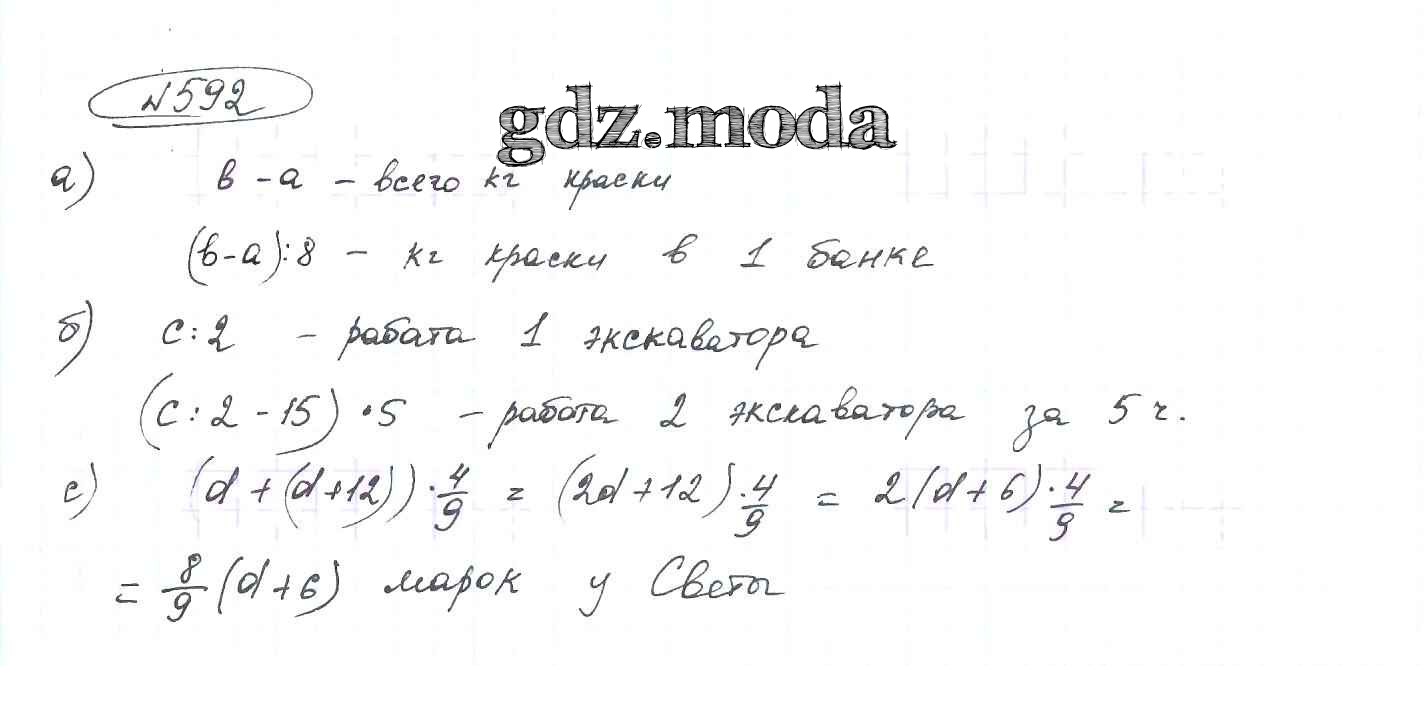 №592
gdz.moda
а) в - а - всего кг краски
(в-а):8 - кг краски в 1 банке
б) с:2 - работа 1 экскаватора
(с:2-15)•5 - работа 2 экскаватора за 5 ч.
с) (d+(d+12))·4/9 = (2d+12)·4/9 = 2(d+6)·4/9 =
= 8/9(d+6) марок у Светы